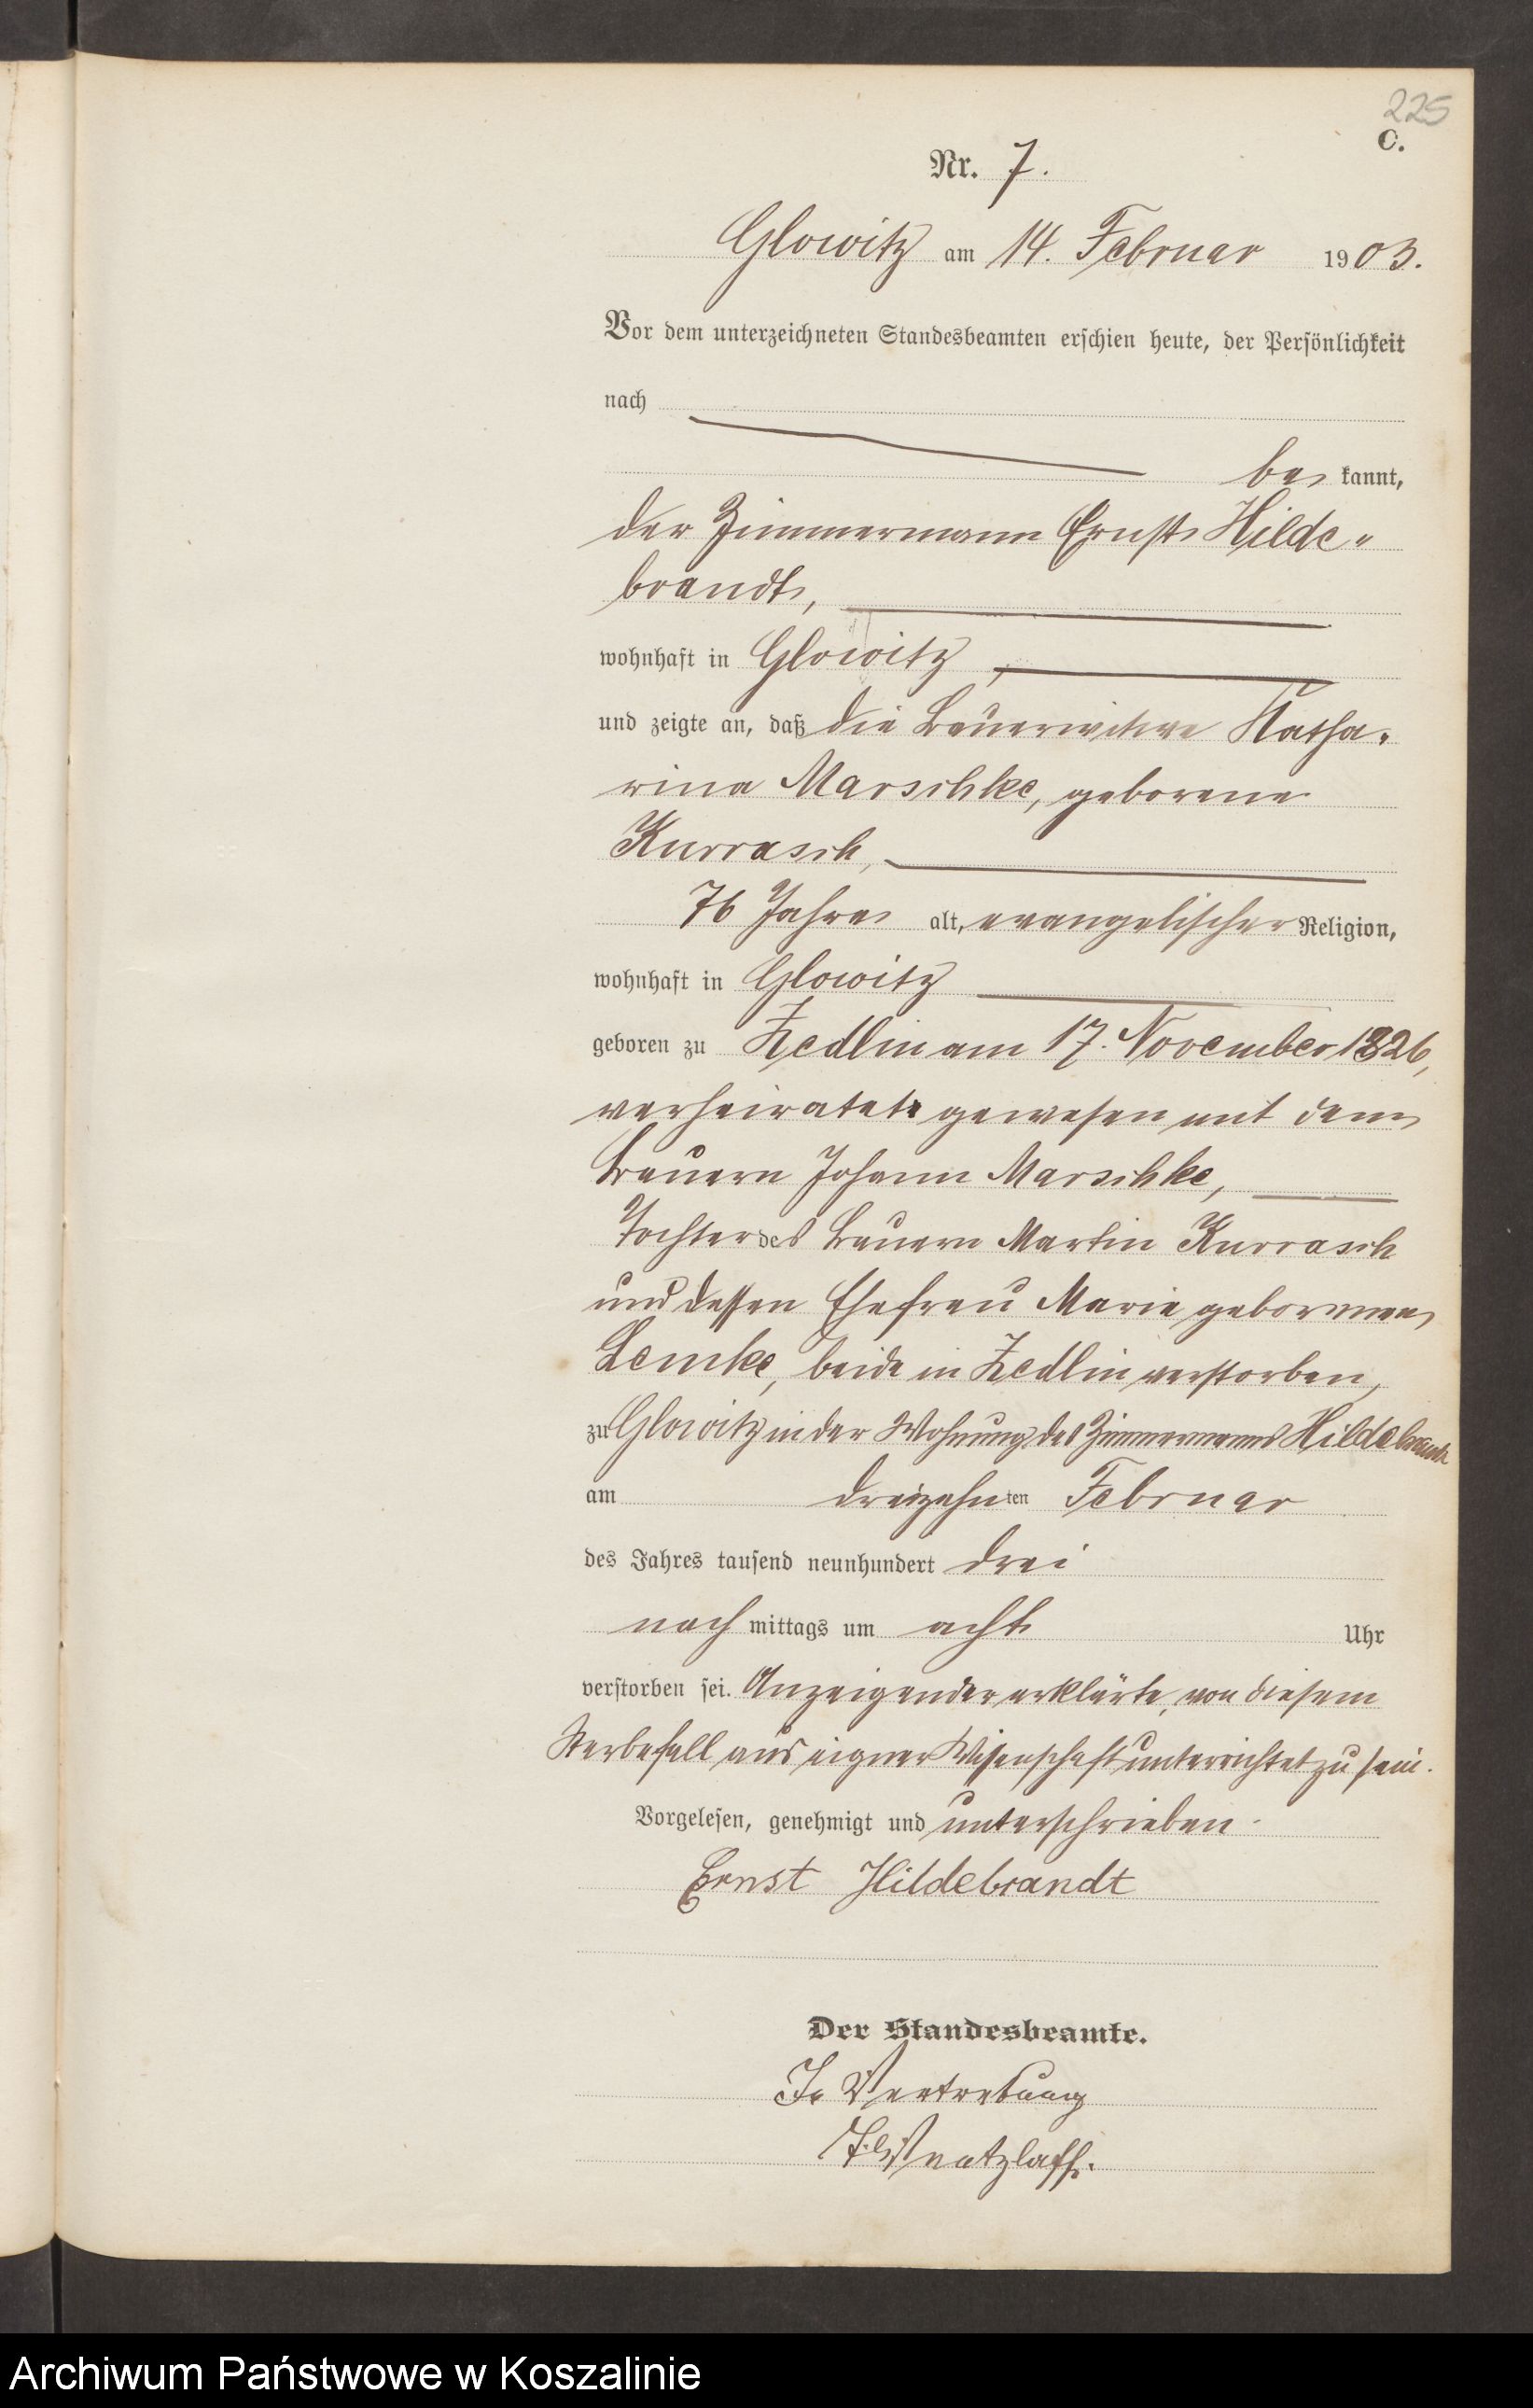 225
C.
Nr. 7.
Glowitz am 14. Februar 1903.
Vor dem unterzeichneten Standesbeamten erschien heute, der Persönlichkeit
nach
be kannt,
der Zimmermann Ernst Hilde-
brandt,
wohnhaft in Glowitz,
und zeigte an, daß die Bauerwitwe Katha-
rina Marschke, geborene
Kurrasch,
76 Jahre alt, evangelischer Religion,
wohnhaft in Glowitz
geboren zu Zedlin am 17. November 1826,
verheiratet gewesen mit dem
Bauern Johann Marschke,
Tochter des Bauern Martin Kurrasch
und dessen Ehefrau Marie geborenen
Lemke, beide in Zedlin verstorben,
zu Glowitz in der Wohnung des Zimmermanns Hildebrandt
am dreizehnten Februar
des Jahres tausend neunhundert drei
nach mittags um acht Uhr
verstorben sei. Anzeigender erklärte, von diesem
Sterbefall aus eigner Wissenschaft unterrichtet zu sein.
Vorgelesen, genehmigt und unterschrieben.
Ernst Hildebrandt
Der Standesbeamte.
In Vertretung
Archiwum Państwowe w Koszalinie